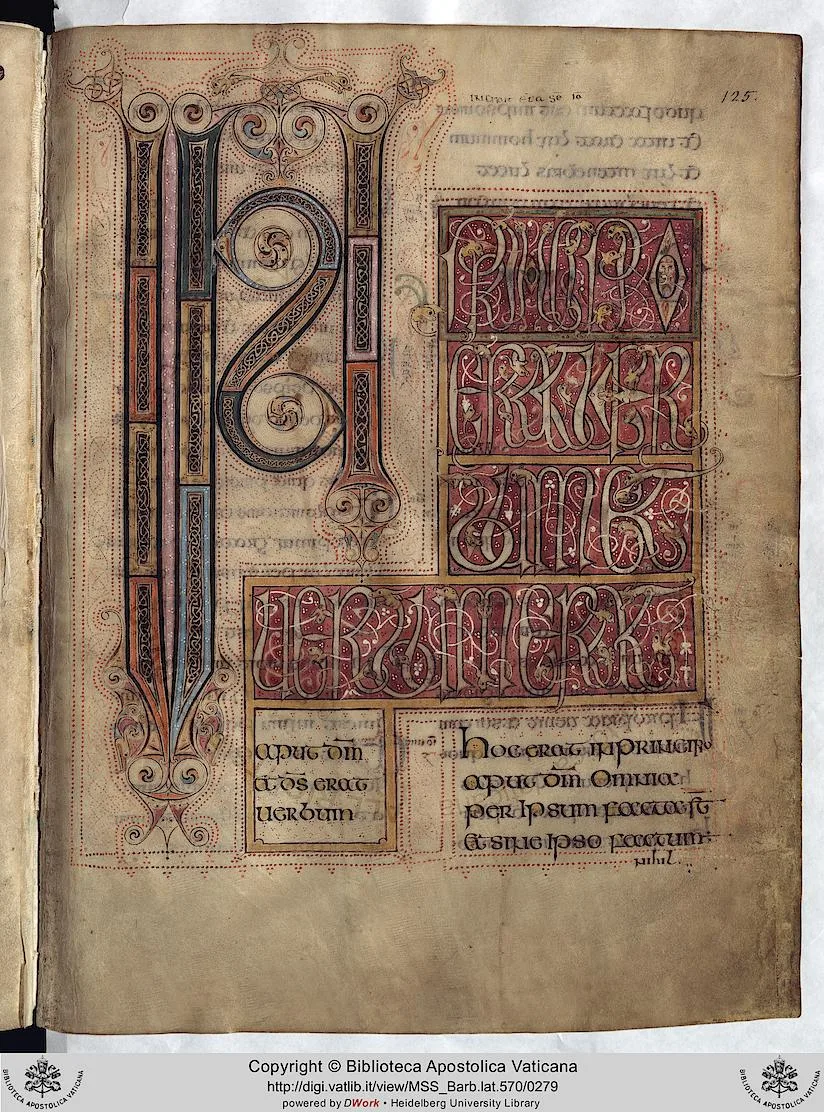 incipit eua se io
125.
IN
PRINCIPIO
ERAT UER
BUM ET
UERBUM ERAT
aput dm̄
et ds̄ erat
uerbum
hoc erat in principio
aput dm̄ Omnia
per ipsum facta st̄
et sine ipso factum
nihil
Copyright © Biblioteca Apostolica Vaticana
http://digi.vatlib.it/view/MSS_Barb.lat.570/0279
powered by DWork • Heidelberg University Library
BIBLIOTECA APOSTOLICA VATICANA
BIBLIOTECA APOSTOLICA VATICANA